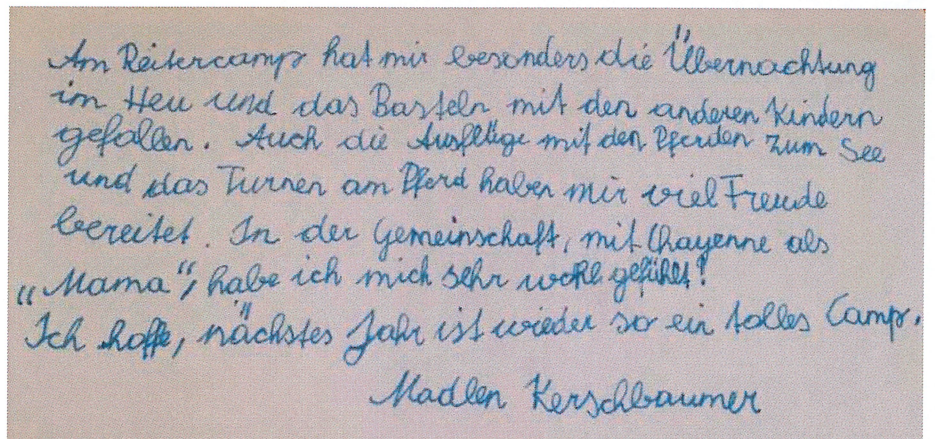 Am Reitercamp hat mir besonders die Übernachtung
im Heu und das Basteln mit den anderen Kindern
gefallen. Auch die Ausflüge mit den Pferden zum See
und das Turnen am Pferd haben mir viel Freude
bereitet. In der Gemeinschaft, mit Chayenne als
„Mama“, habe ich mich sehr wohl gefühlt!
Ich hoffe, nächstes Jahr ist wieder so ein tolles Camp.
Madlen Kerschbaumer